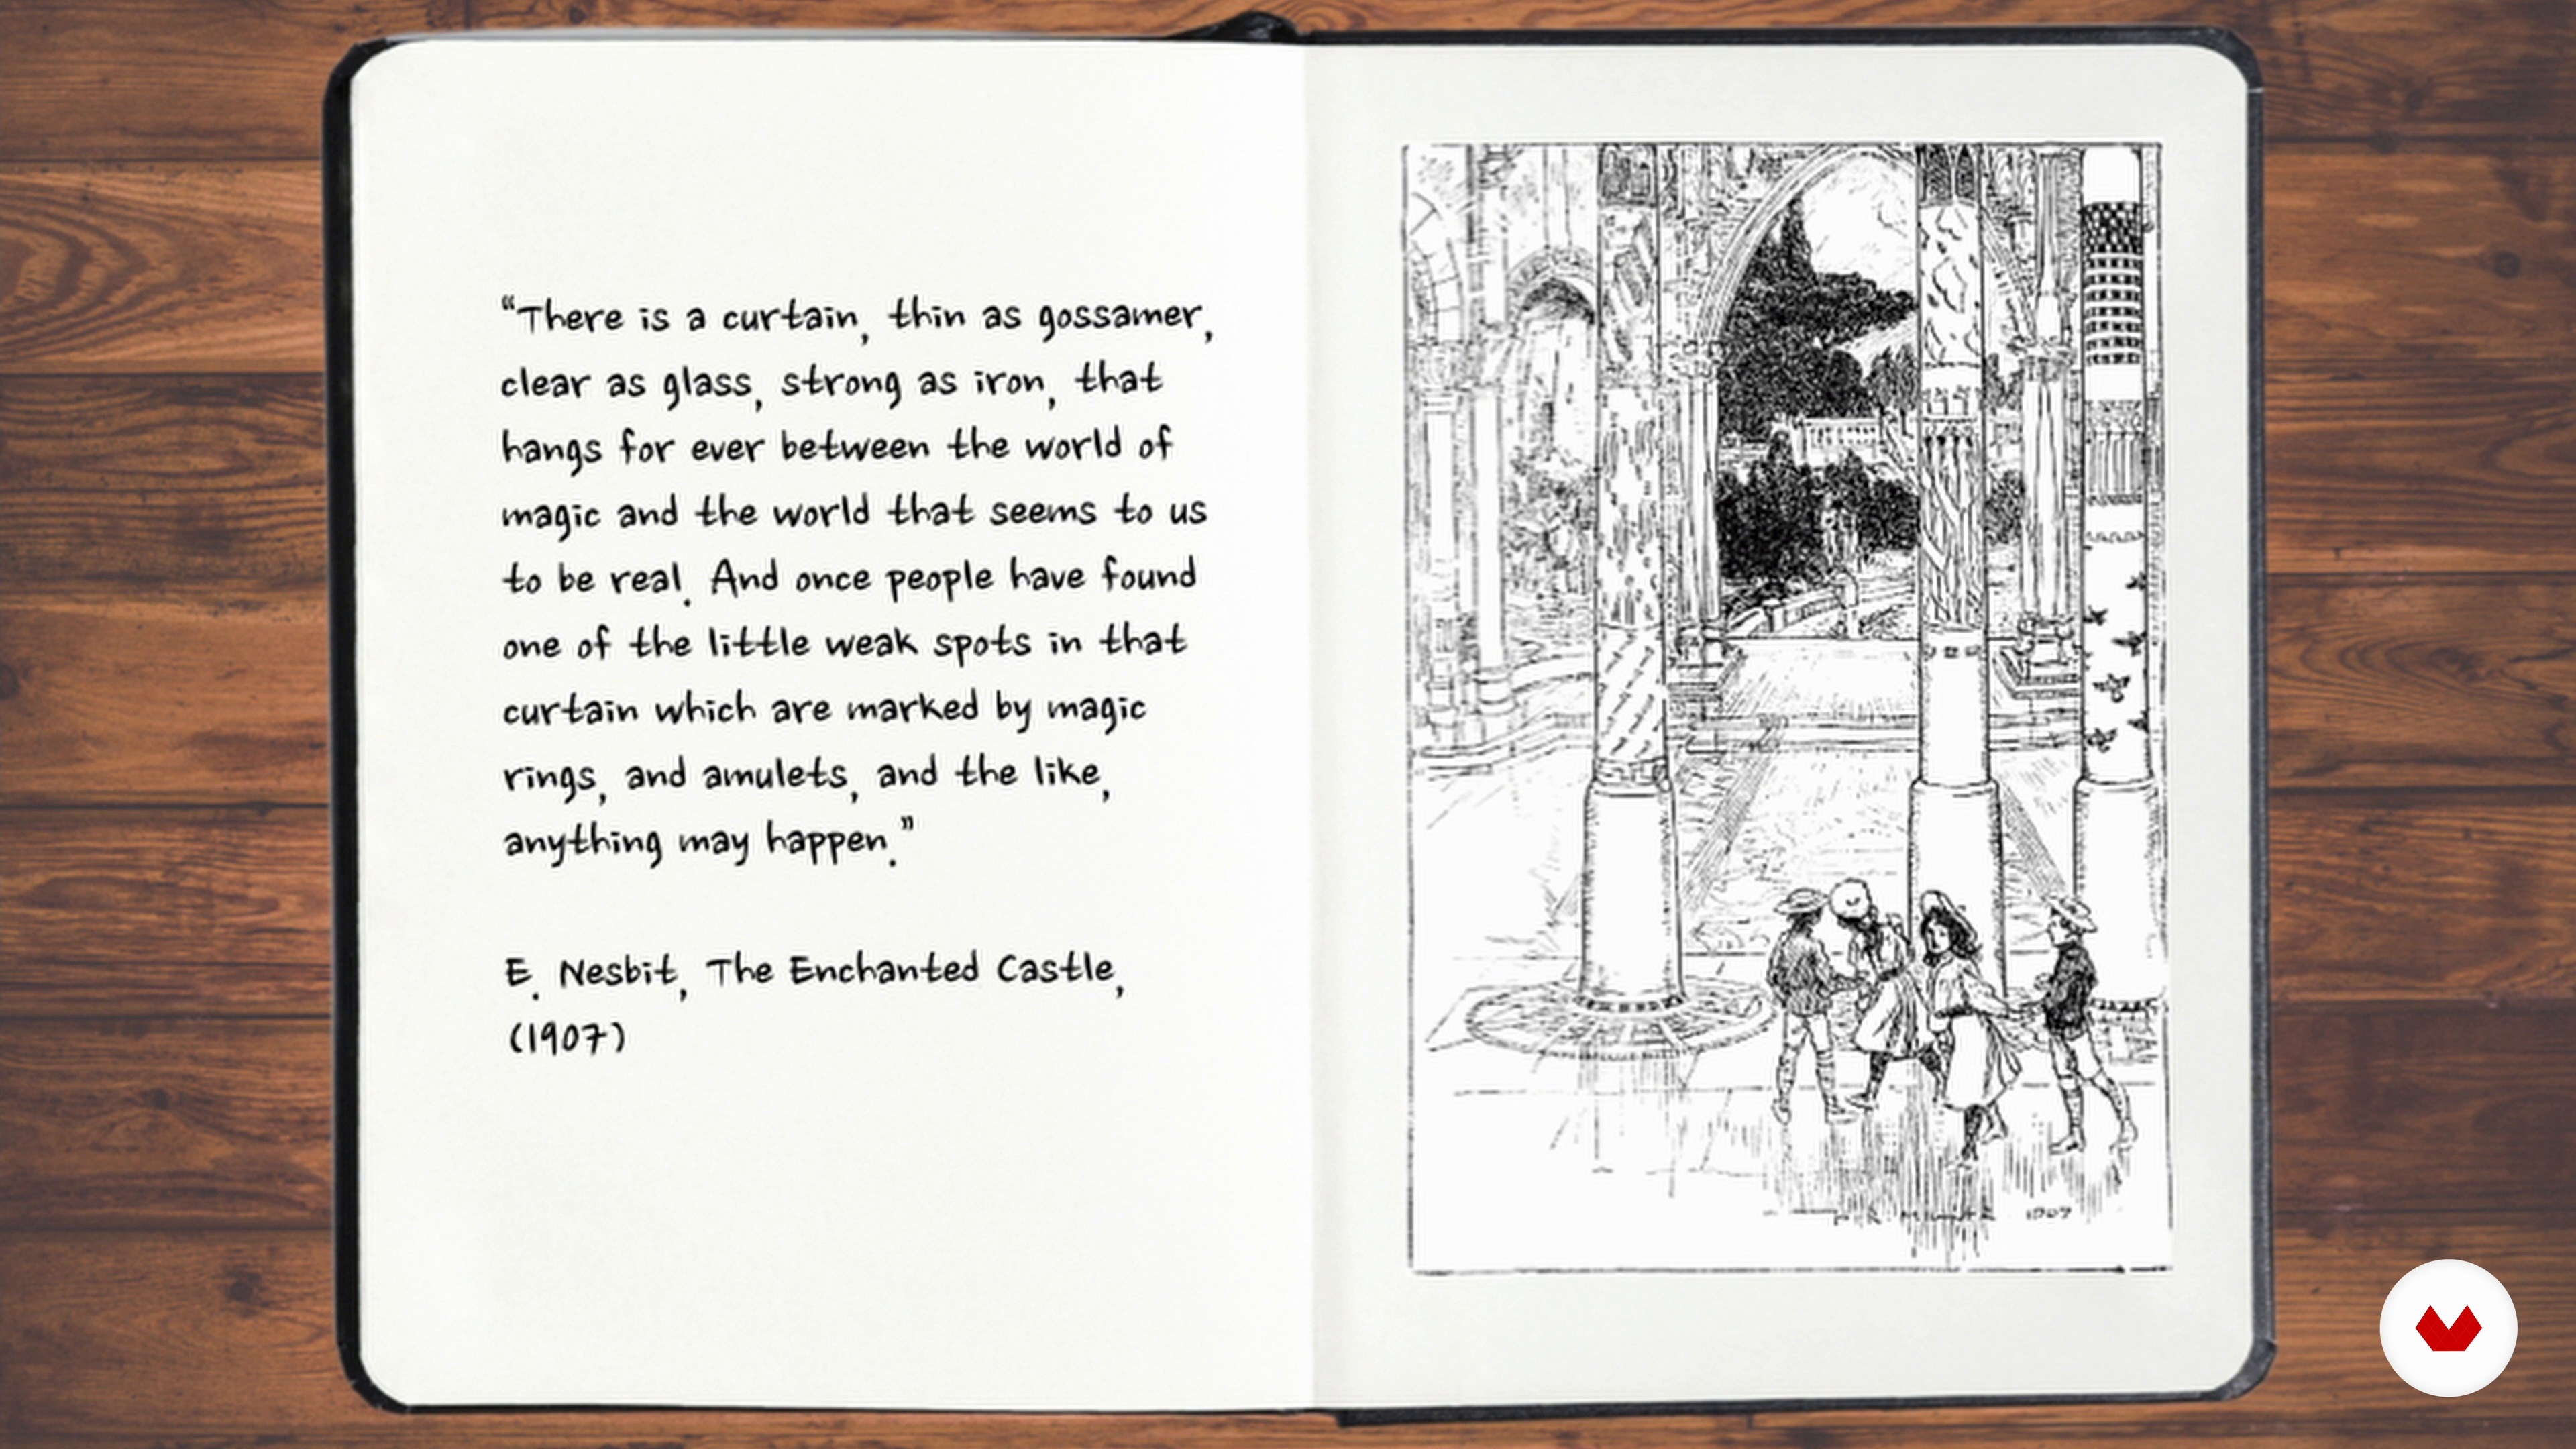 “There is a curtain, thin as gossamer,
clear as glass, strong as iron, that
hangs for ever between the world of
magic and the world that seems to us
to be real. And once people have found
one of the little weak spots in that
curtain which are marked by magic
rings, and amulets, and the like,
anything may happen.”
E. Nesbit, The Enchanted Castle,
(1907)
1907